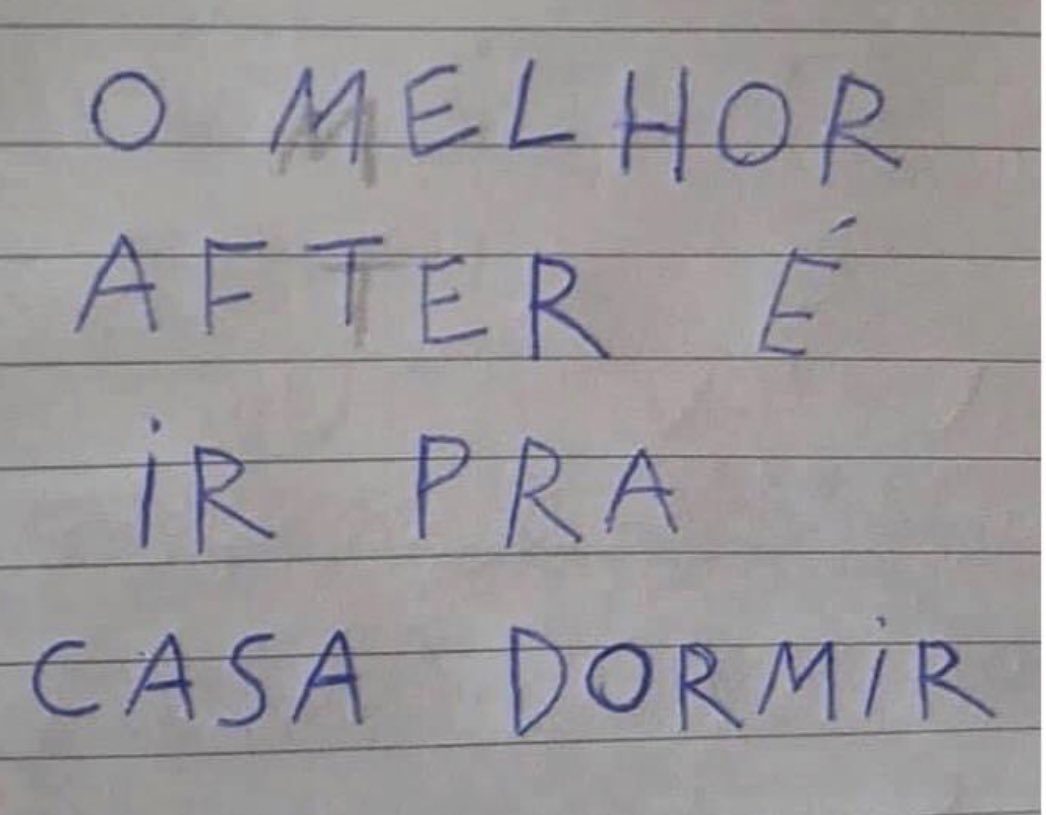 O MELHOR
AFTER É
iR PRA
CASA DORMiR